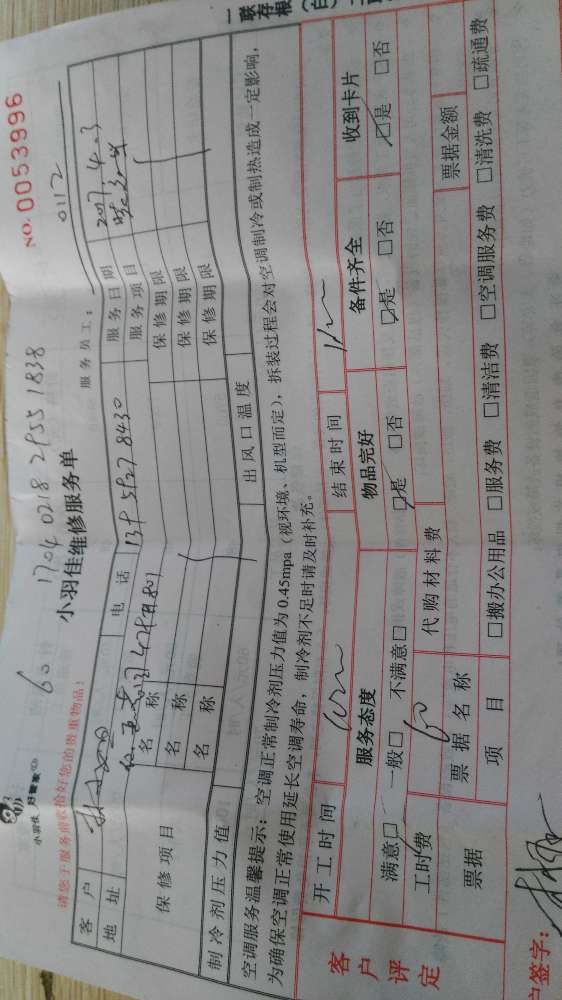 一联存根（白）
NO. 0053996
小羽佳 好管家
60
1704 0218 2955 1838
小羽佳维修服务单
请您于服务前收拾好您的贵重物品！
服务员工： 0112
客户
电话
服务日期 2017.4.3
地址
服务项目
保修项目
名称
保修期限
名称
保修期限
名称
保修期限
制冷剂压力值
出风口温度
空调服务温馨提示：空调正常制冷剂压力值为0.45mpa（视环境、机型而定），拆装过程会对空调制冷或制热造成一定影响，
为确保空调正常使用延长空调寿命，制冷剂不足时请及时补充。
客户评定
开工时间
结束时间
服务态度
物品完好
备件齐全
收到卡片
满意□ 一般□ 不满意□
□是 □否
□是 □否
□是 □否
工时费 60
代购材料费
票据
票据名称
票据金额
项目
□搬办公用品 □服务费 □清洁费 □空调服务费 □清洗费 □疏通费
户签字：